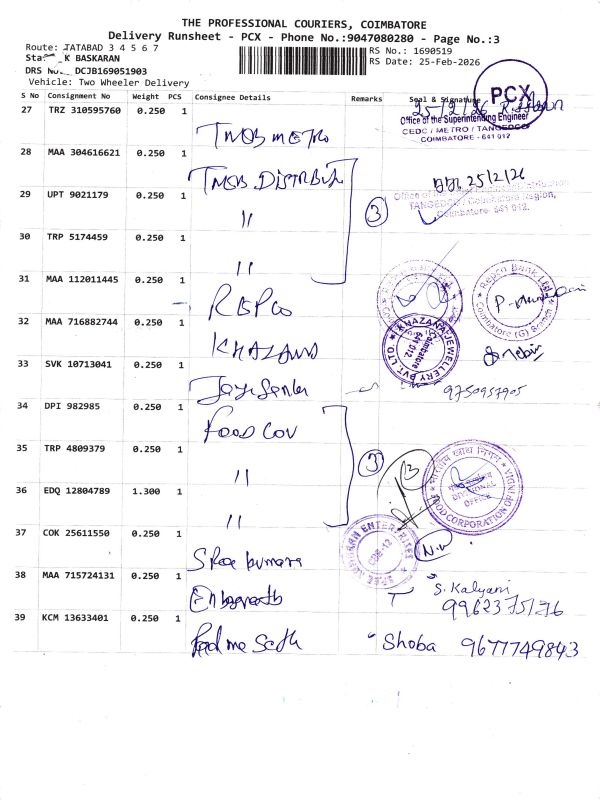 THE PROFESSIONAL COURIERS, COIMBATORE
Delivery Runsheet - PCX - Phone No.:9047080280 - Page No.:3
Route: TATABAD 3 4 5 6 7
RS No.: 1690519
K BASKARAN
RS Date: 25-Feb-2026
DRS No. DCJB169051903
Vehicle: Two Wheeler Delivery
S No Consignment No Weight PCS Consignee Details Remarks Seal & Signature
PCX
27 TRZ 310595760 0.250 1 TNEB METRO
25/2/26
Office of the Superintending Engineer
CEDC / METRO / TANGEDCO
COIMBATORE - 641 012
28 MAA 304616621 0.250 1 TNEB DISTRIBU
25/2/26
29 UPT 9021179 0.250 1 "
3
TANGEDCO / Coimbatore Region,
Coimbatore 641 012.
30 TRP 5174459 0.250 1 "
31 MAA 112011445 0.250 1 REPCO
Repco Bank Ltd.
Coimbatore (G) Branch
32 MAA 716882744 0.250 1 KHAZANA
KHAZANA JEWELLERY PVT. LTD.
Coimbatore
641 012
33 SVK 10713041 0.250 1
9750957905
34 DPI 982985 0.250 1 FOOD COV
35 TRP 4809379 0.250 1 "
3
भारतीय खाद्य निगम
FOOD CORPORATION OF
DIVISIONAL
OFFICE
36 EDQ 12804789 1.300 1 "
37 COK 25611550 0.250 1 Sree kumara
ENTERPRISES
CBE-12
N.V
38 MAA 715724131 0.250 1
S. Kalyani
9962375176
39 KCM 13633401 0.250 1
Shoba 9677749843